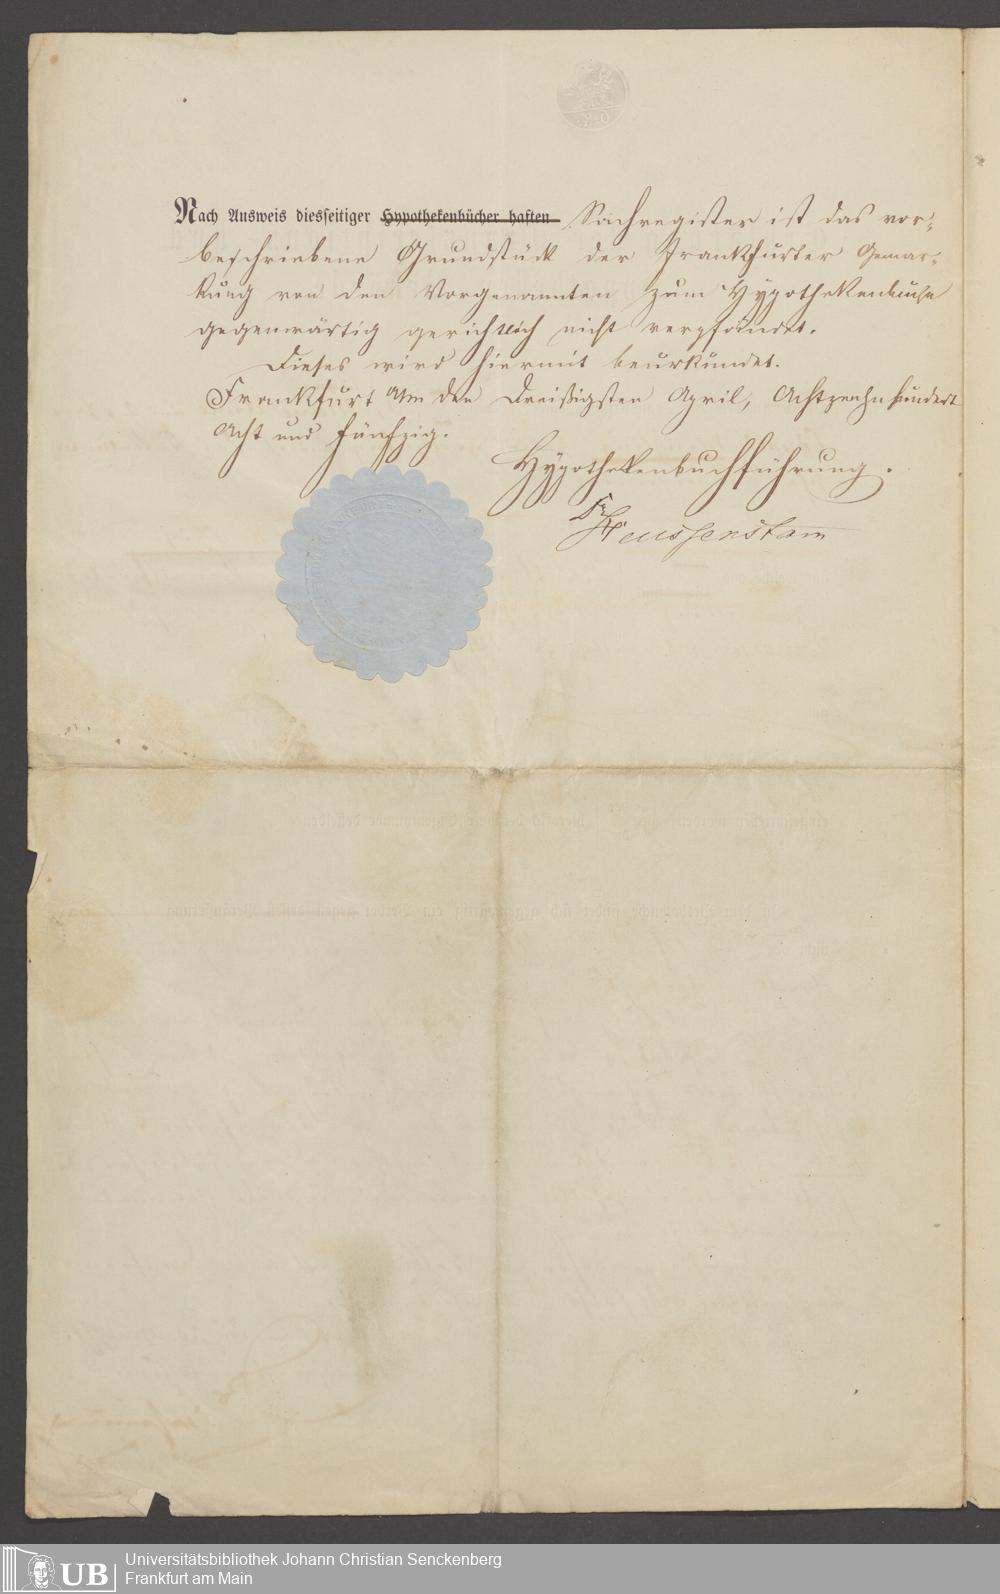 Nach Ausweis diesseitiger Hypothekenbücher haften Sachregister ist das vor-
beschriebene Grundstück der Frankfurter Gemar-
kung von den Vorgenannten zum Hypothekenbuche
gegenwärtig gerichtlich nicht verpfändet.
Dieses wird hiermit beurkundet.
Frankfurt a/m den Dreißigsten April, Achtzehnhundert
Acht und fünfzig.
Hypothekenbuchführung.
Dr Heussenstam
UB
Universitätsbibliothek Johann Christian Senckenberg
Frankfurt am Main